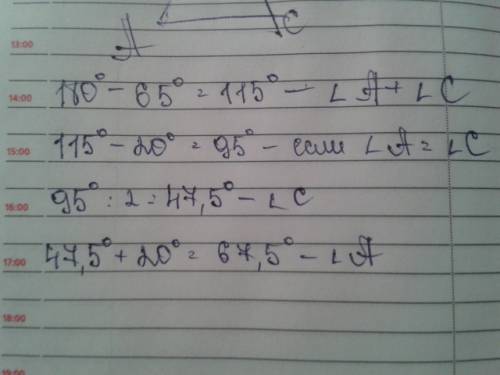 A C
13:00
14:00 180° - 65° = 115° - ∠A + ∠C
15:00 115° - 20° = 95° - если ∠A = ∠C
16:00 95° : 2 = 47,5° - ∠C
17:00 47,5° + 20° = 67,5° - ∠A
18:00
19:00